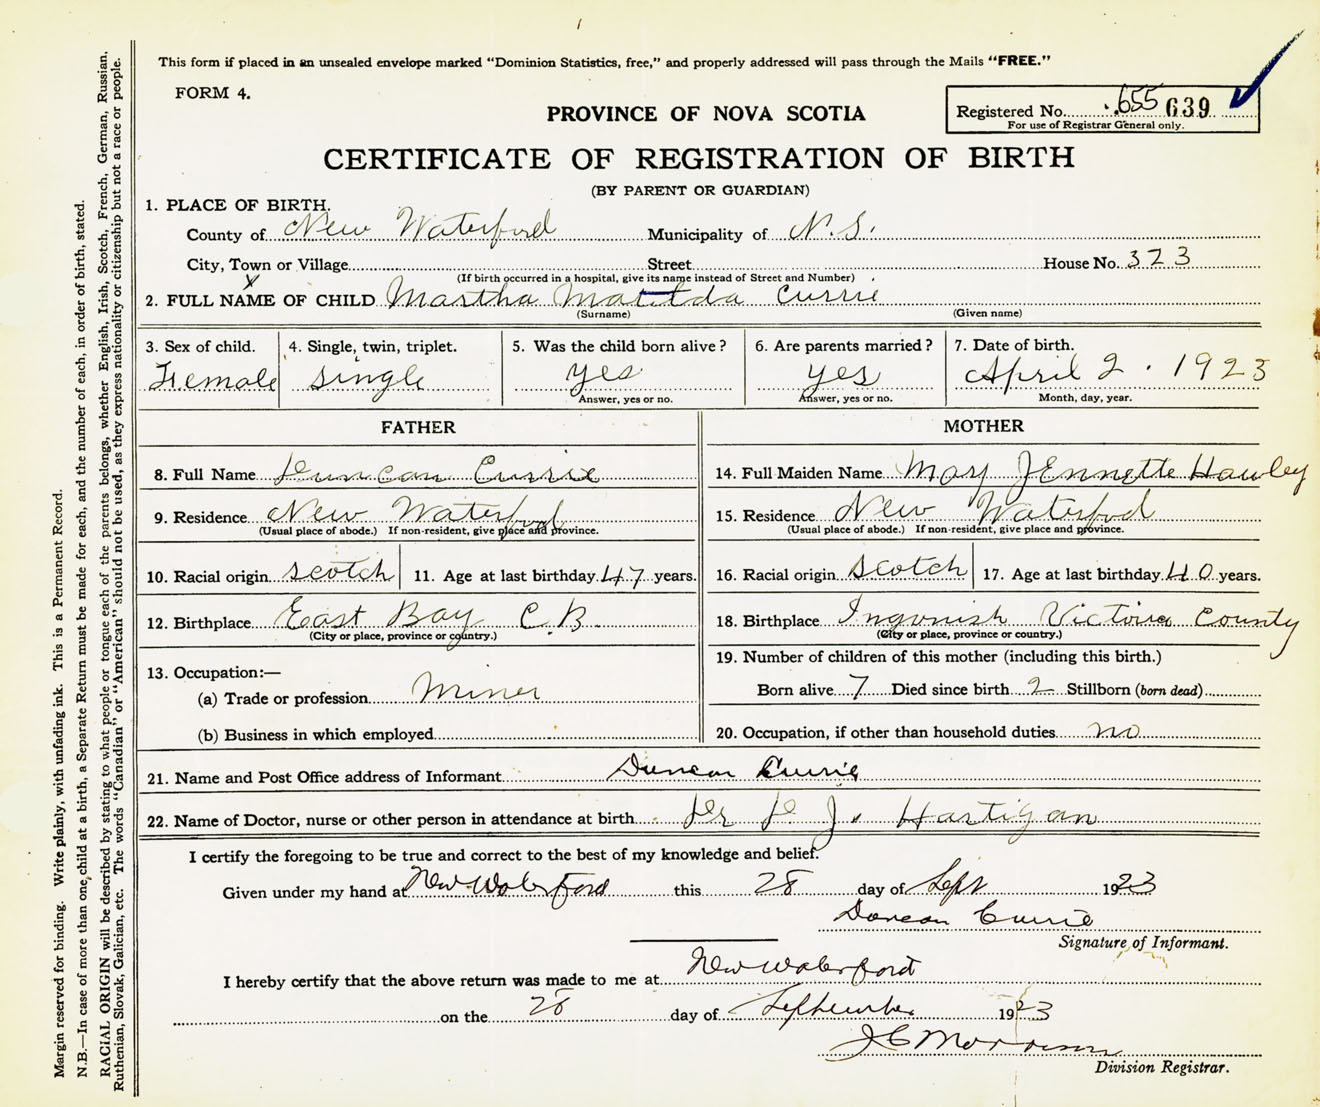 This form if placed in an unsealed envelope marked "Dominion Statistics, free," and properly addressed will pass through the Mails "FREE."
FORM 4.
PROVINCE OF NOVA SCOTIA
Registered No. 655 639
For use of Registrar General only.
CERTIFICATE OF REGISTRATION OF BIRTH
(BY PARENT OR GUARDIAN)
1. PLACE OF BIRTH.
County of New Waterford Municipality of N.S.
City, Town or Village Street House No. 323
(If birth occurred in a hospital, give its name instead of Street and Number)
X
2. FULL NAME OF CHILD Martha Matilda Currie
(Surname) (Given name)
3. Sex of child. 4. Single, twin, triplet. 5. Was the child born alive? 6. Are parents married? 7. Date of birth.
Female single yes yes April 2. 1923
Answer, yes or no. Answer, yes or no. Month, day, year.
FATHER MOTHER
8. Full Name Duncan Currie 14. Full Maiden Name Mary JEnnette Hawley
9. Residence New Waterford 15. Residence New Waterford
(Usual place of abode.) If non-resident, give place and province. (Usual place of abode.) If non-resident, give place and province.
10. Racial origin scotch 11. Age at last birthday 47 years. 16. Racial origin Scotch 17. Age at last birthday 40 years.
12. Birthplace East Bay C.B. 18. Birthplace Ingonish Victoria County
(City or place, province or country.) (City or place, province or country.)
13. Occupation:— 19. Number of children of this mother (including this birth.)
(a) Trade or profession Miner Born alive 7 Died since birth 2 Stillborn (born dead)
(b) Business in which employed 20. Occupation, if other than household duties no
21. Name and Post Office address of Informant Duncan Currie
22. Name of Doctor, nurse or other person in attendance at birth Dr J. Hartigan
I certify the foregoing to be true and correct to the best of my knowledge and belief.
Given under my hand at New Waterford this 28 day of Sept 1923
Duncan Currie
Signature of Informant.
I hereby certify that the above return was made to me at New Waterford
on the 28 day of September 1923
J C Morrison
Division Registrar.
Margin reserved for binding. Write plainly, with unfading ink. This is a Permanent Record.
N.B.—In case of more than one child at a birth, a Separate Return must be made for each, and the number of each, in order of birth, stated.
RACIAL ORIGIN will be described by stating to what people or tongue each of the parents belongs, whether English, Irish, Scotch, French, German, Russian,
Ruthenian, Slovak, Galician, etc. The words "Canadian" or "American" should not be used, as they express nationality or citizenship but not a race or people.